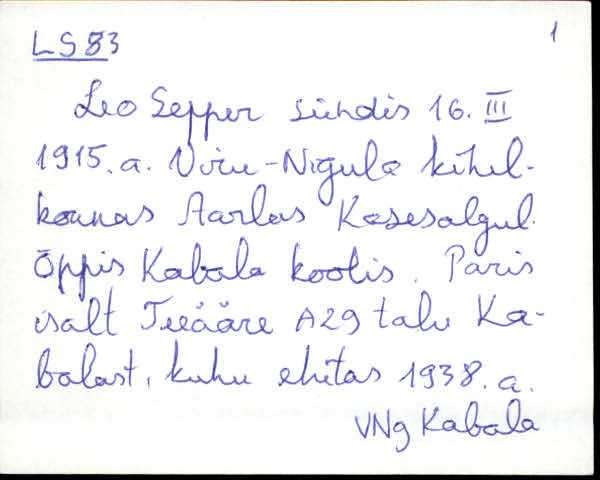 LS83
1
Leo Sepper sündis 16. III
1915. a. Viru-Nigula kihel-
konnas Aarlas Kasesalgul.
Õppis Kabala koolis. Päris
isalt Teeääre A29 talu Ka-
balast, kuhu ehitas 1938. a.
VNg Kabala